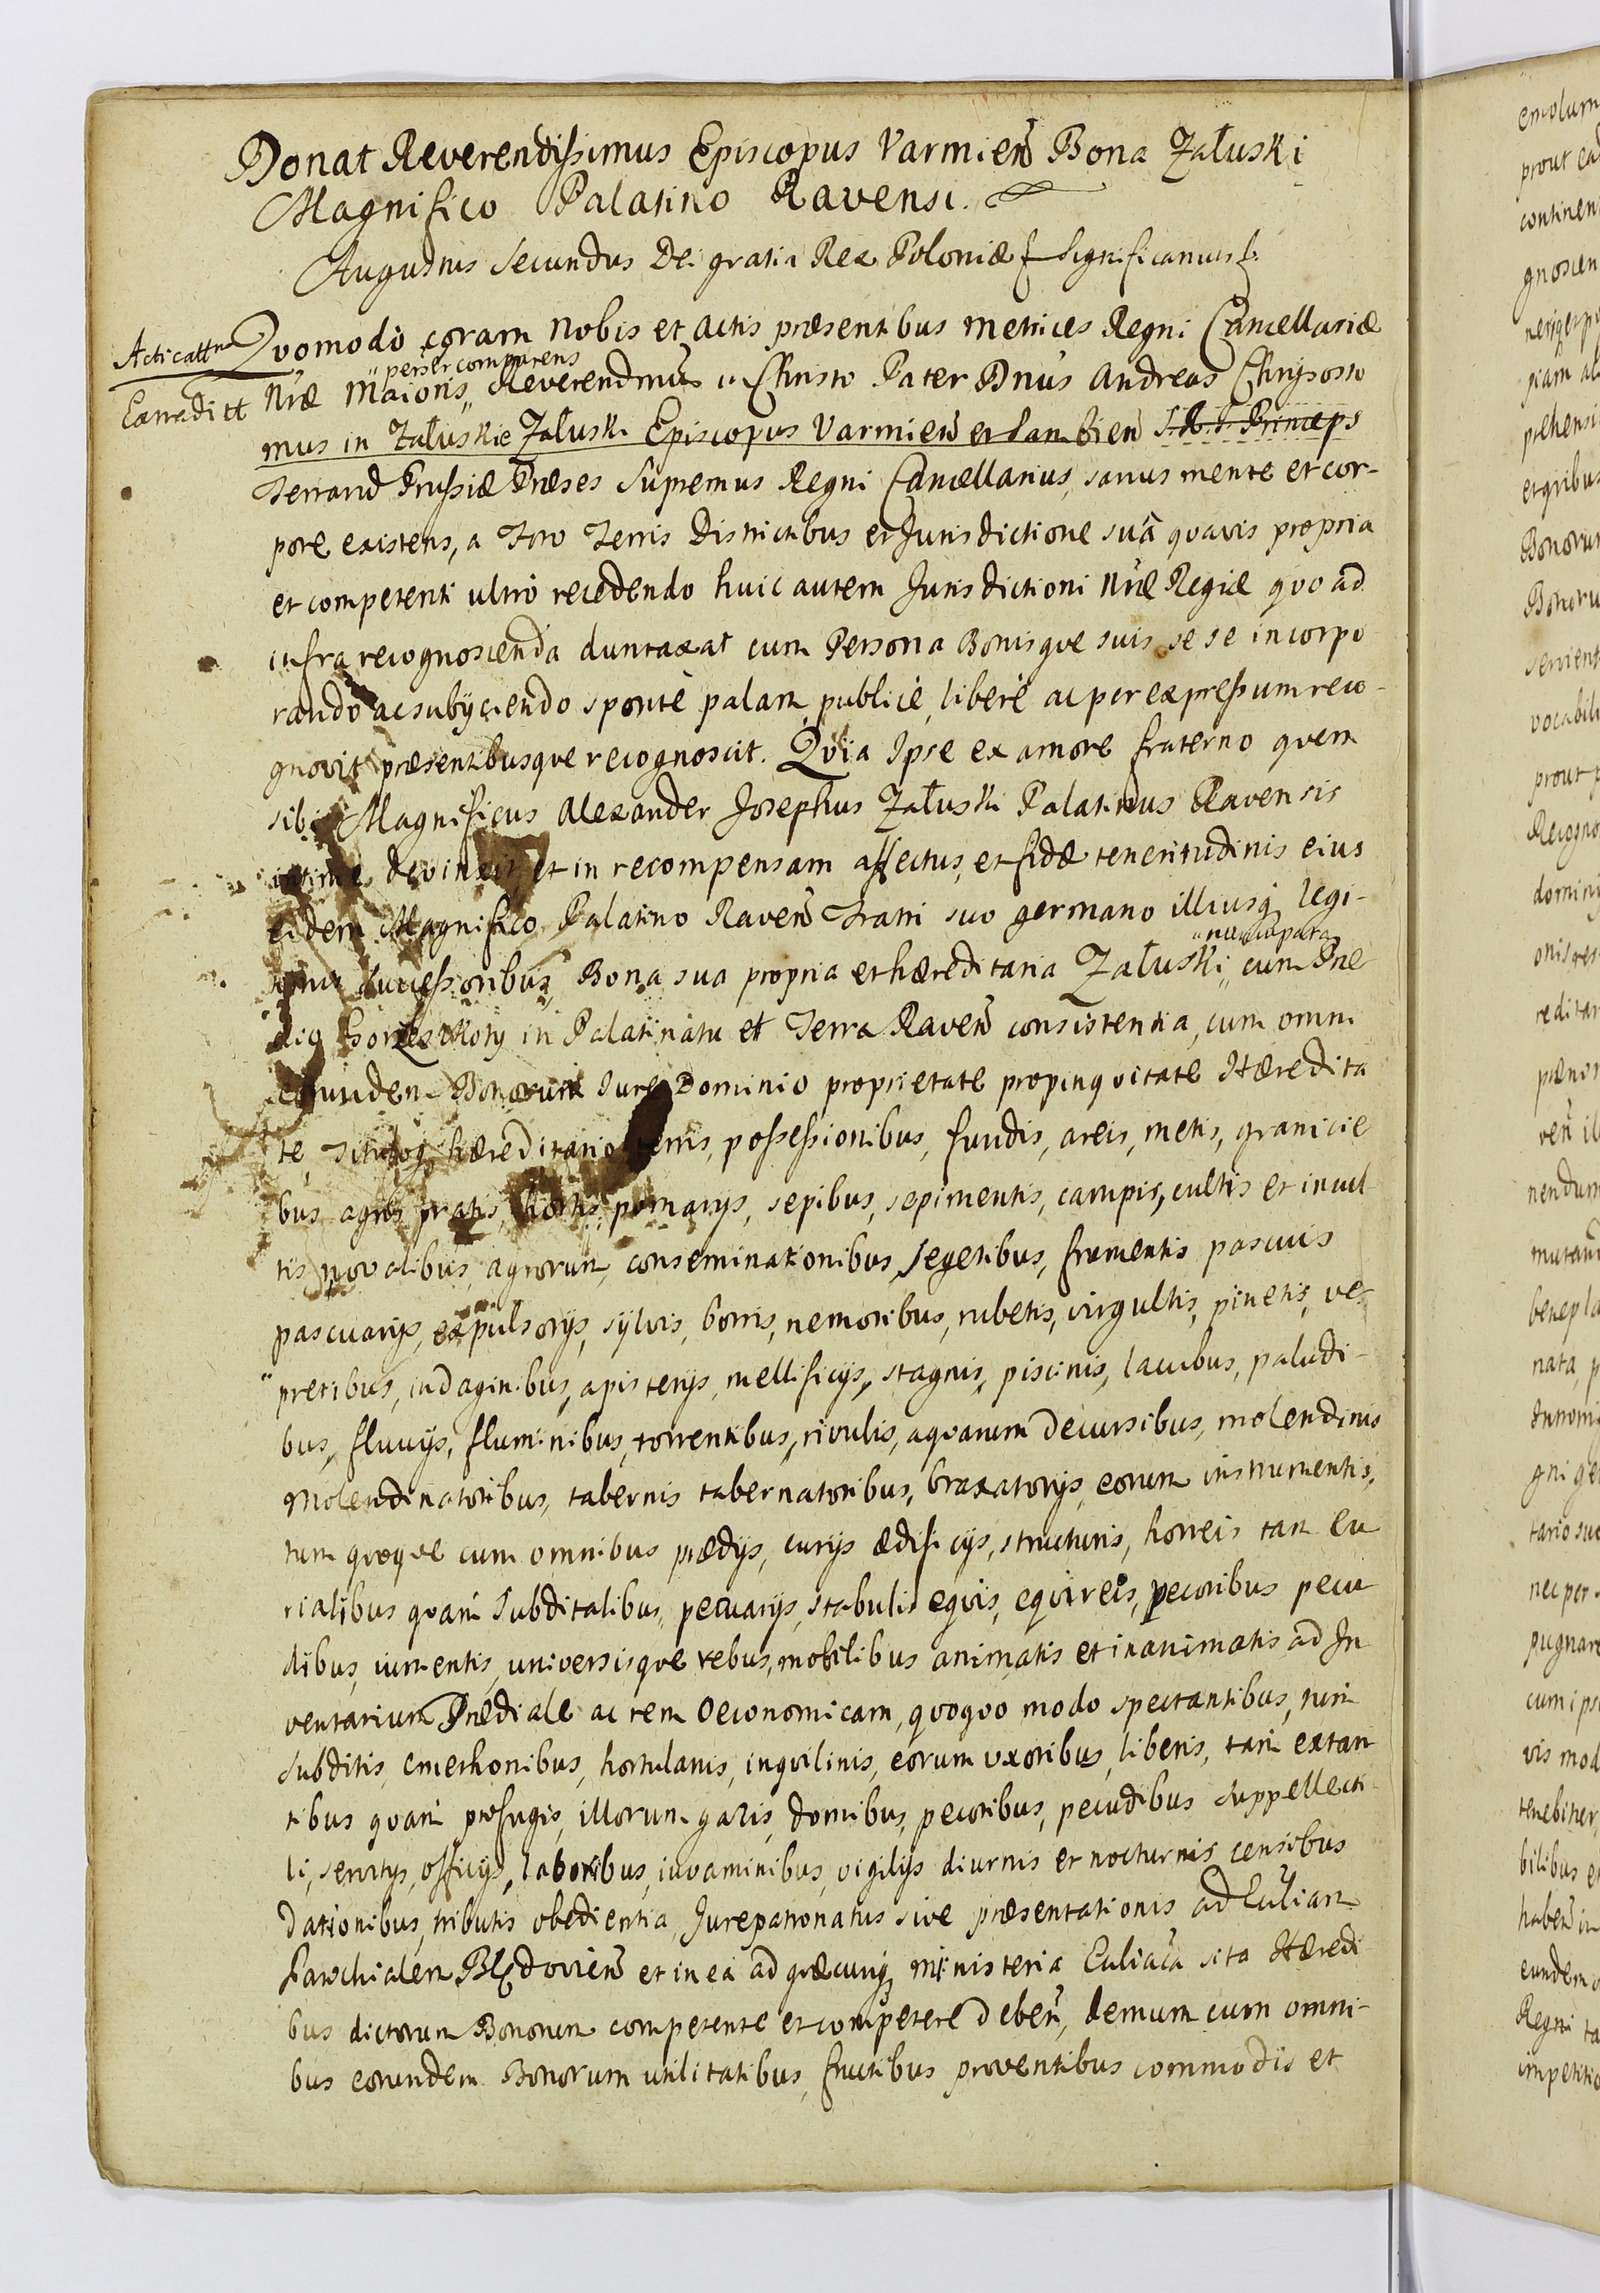 Donat Reverendissimus Episcopus Varmień Bona Załuski
Magnifico Palatino Ravensi.
Augustus Secundus Dei gratia Rex Poloniæ Significamus
Acticattm
Extraditt
Quomodo coram Nobis et Actis præsentibus Metrices Regni Cancellariæ
Nræ Maioris „ Reverendmus in Christo Pater Dnus Andreas Chrysosto
„ perser comparens
mus in Załuskie Załuski Episcopus Varmień et Sambień S. R. I. Princeps
Terrarū Prussiæ Præses Supremus Regni Cancellarius, sanus mente et cor-
pore existens, a Foro Terris Districtibus et Jurisdictione suâ quavis propria
et competenti ultro recedendo huic autem Jurisdictioni Nræ Regiæ quo ad
infra recognoscenda duntaxat cum Persona Bonisque suis se se incorpo
rando ac subijciendo sponte palam publicè, liberè ac per expressum reco-
gnovit præsentibusque recognoscit. Quia Ipse ex amore fraterno quem
sibi Magnificus Alexander Josephus Załuski Palatinus Ravensis
devinxit, et in recompensam affectus, et fidæ teneritudinis eius
eidem Magnifico Palatino Raveń Fratri suo germano illiusq legi-
successoribus, Bona sua propria et hæreditaria Załuski „ cum Præ
„ nuncupata
dio in Palatinatu et Terra Raveń consistentia, cum omni
eorundem Bonorum Jure Dominio proprietate propinquitate Hæredita
te, Tituloq hæreditario terris, possessionibus, fundis, areis, metis, granicie
bus agris pratis, hortis, pomarijs, sepibus, sepimentis, campis, cultis et incul
tis novalibus, agrorum, conseminationibus, segetibus, frumentis pascuis
pascuarijs, expulsorijs, sylvis, borris, nemoribus, rubetis, virgultis, pinetis, ve-
pretibus, indaginibus, apisterijs, mellificijs, stagnis, piscinis, lacubus, paludi-
bus, fluvijs, fluminibus, torrentibus, rivulis, aquarum decursibus, molendinis
molendinatoribus, tabernis tabernatoribus, braxatorijs, eorum instrumentis,
tum quoque cum omnibus prædijs, curijs ædificijs, structuris, horreis tam cu
rialibus quam subditalibus, pecuarijs, stabulis equis, equireis, pecoribus pecu
dibus, iumentis, universisque rebus, mobilibus animatis et inanimatis ad In
ventarium Prædiale ac rem oeconomicam, quoquo modo spectantibus, tum
subditis, cmethonibus, hortulanis, inquilinis, eorum uxoribus, liberis, tam extan
tibus quam profugis, illorum gazis, domibus, pecoribus, pecudibus suppellecti
li, servitijs, officijs, laboribus, iuvaminibus, vigilijs diurnis et nocturnis censibus
dationibus, tributis obedientia, Jurepatronatus sive præsentationis ad Ecclĩam
Parochialem Błędovień et in ea ad quæcunq ministeria sita Hæredi
bus dictorum Bonorum competente et competere debeń, demum cum omni-
bus eorundem Bonorum utilitatibus, fructibus proventibus commodis et